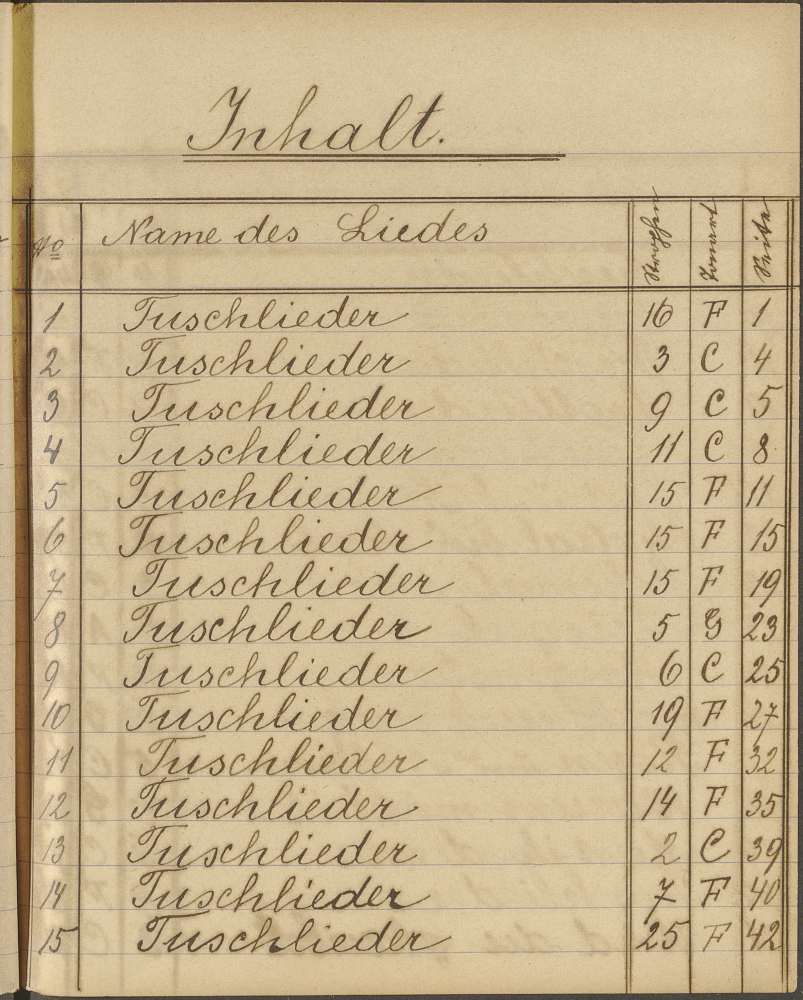 Inhalt.
No Name des Liedes Strophen Tonart Seite
1 Tuschlieder 16 F 1
2 Tuschlieder 3 C 4
3 Tuschlieder 9 C 5
4 Tuschlieder 11 C 8
5 Tuschlieder 15 F 11
6 Tuschlieder 15 F 15
7 Tuschlieder 15 F 19
8 Tuschlieder 5 G 23
9 Tuschlieder 6 C 25
10 Tuschlieder 19 F 27
11 Tuschlieder 12 F 32
12 Tuschlieder 14 F 35
13 Tuschlieder 2 C 39
14 Tuschlieder 7 F 40
15 Tuschlieder 25 F 42